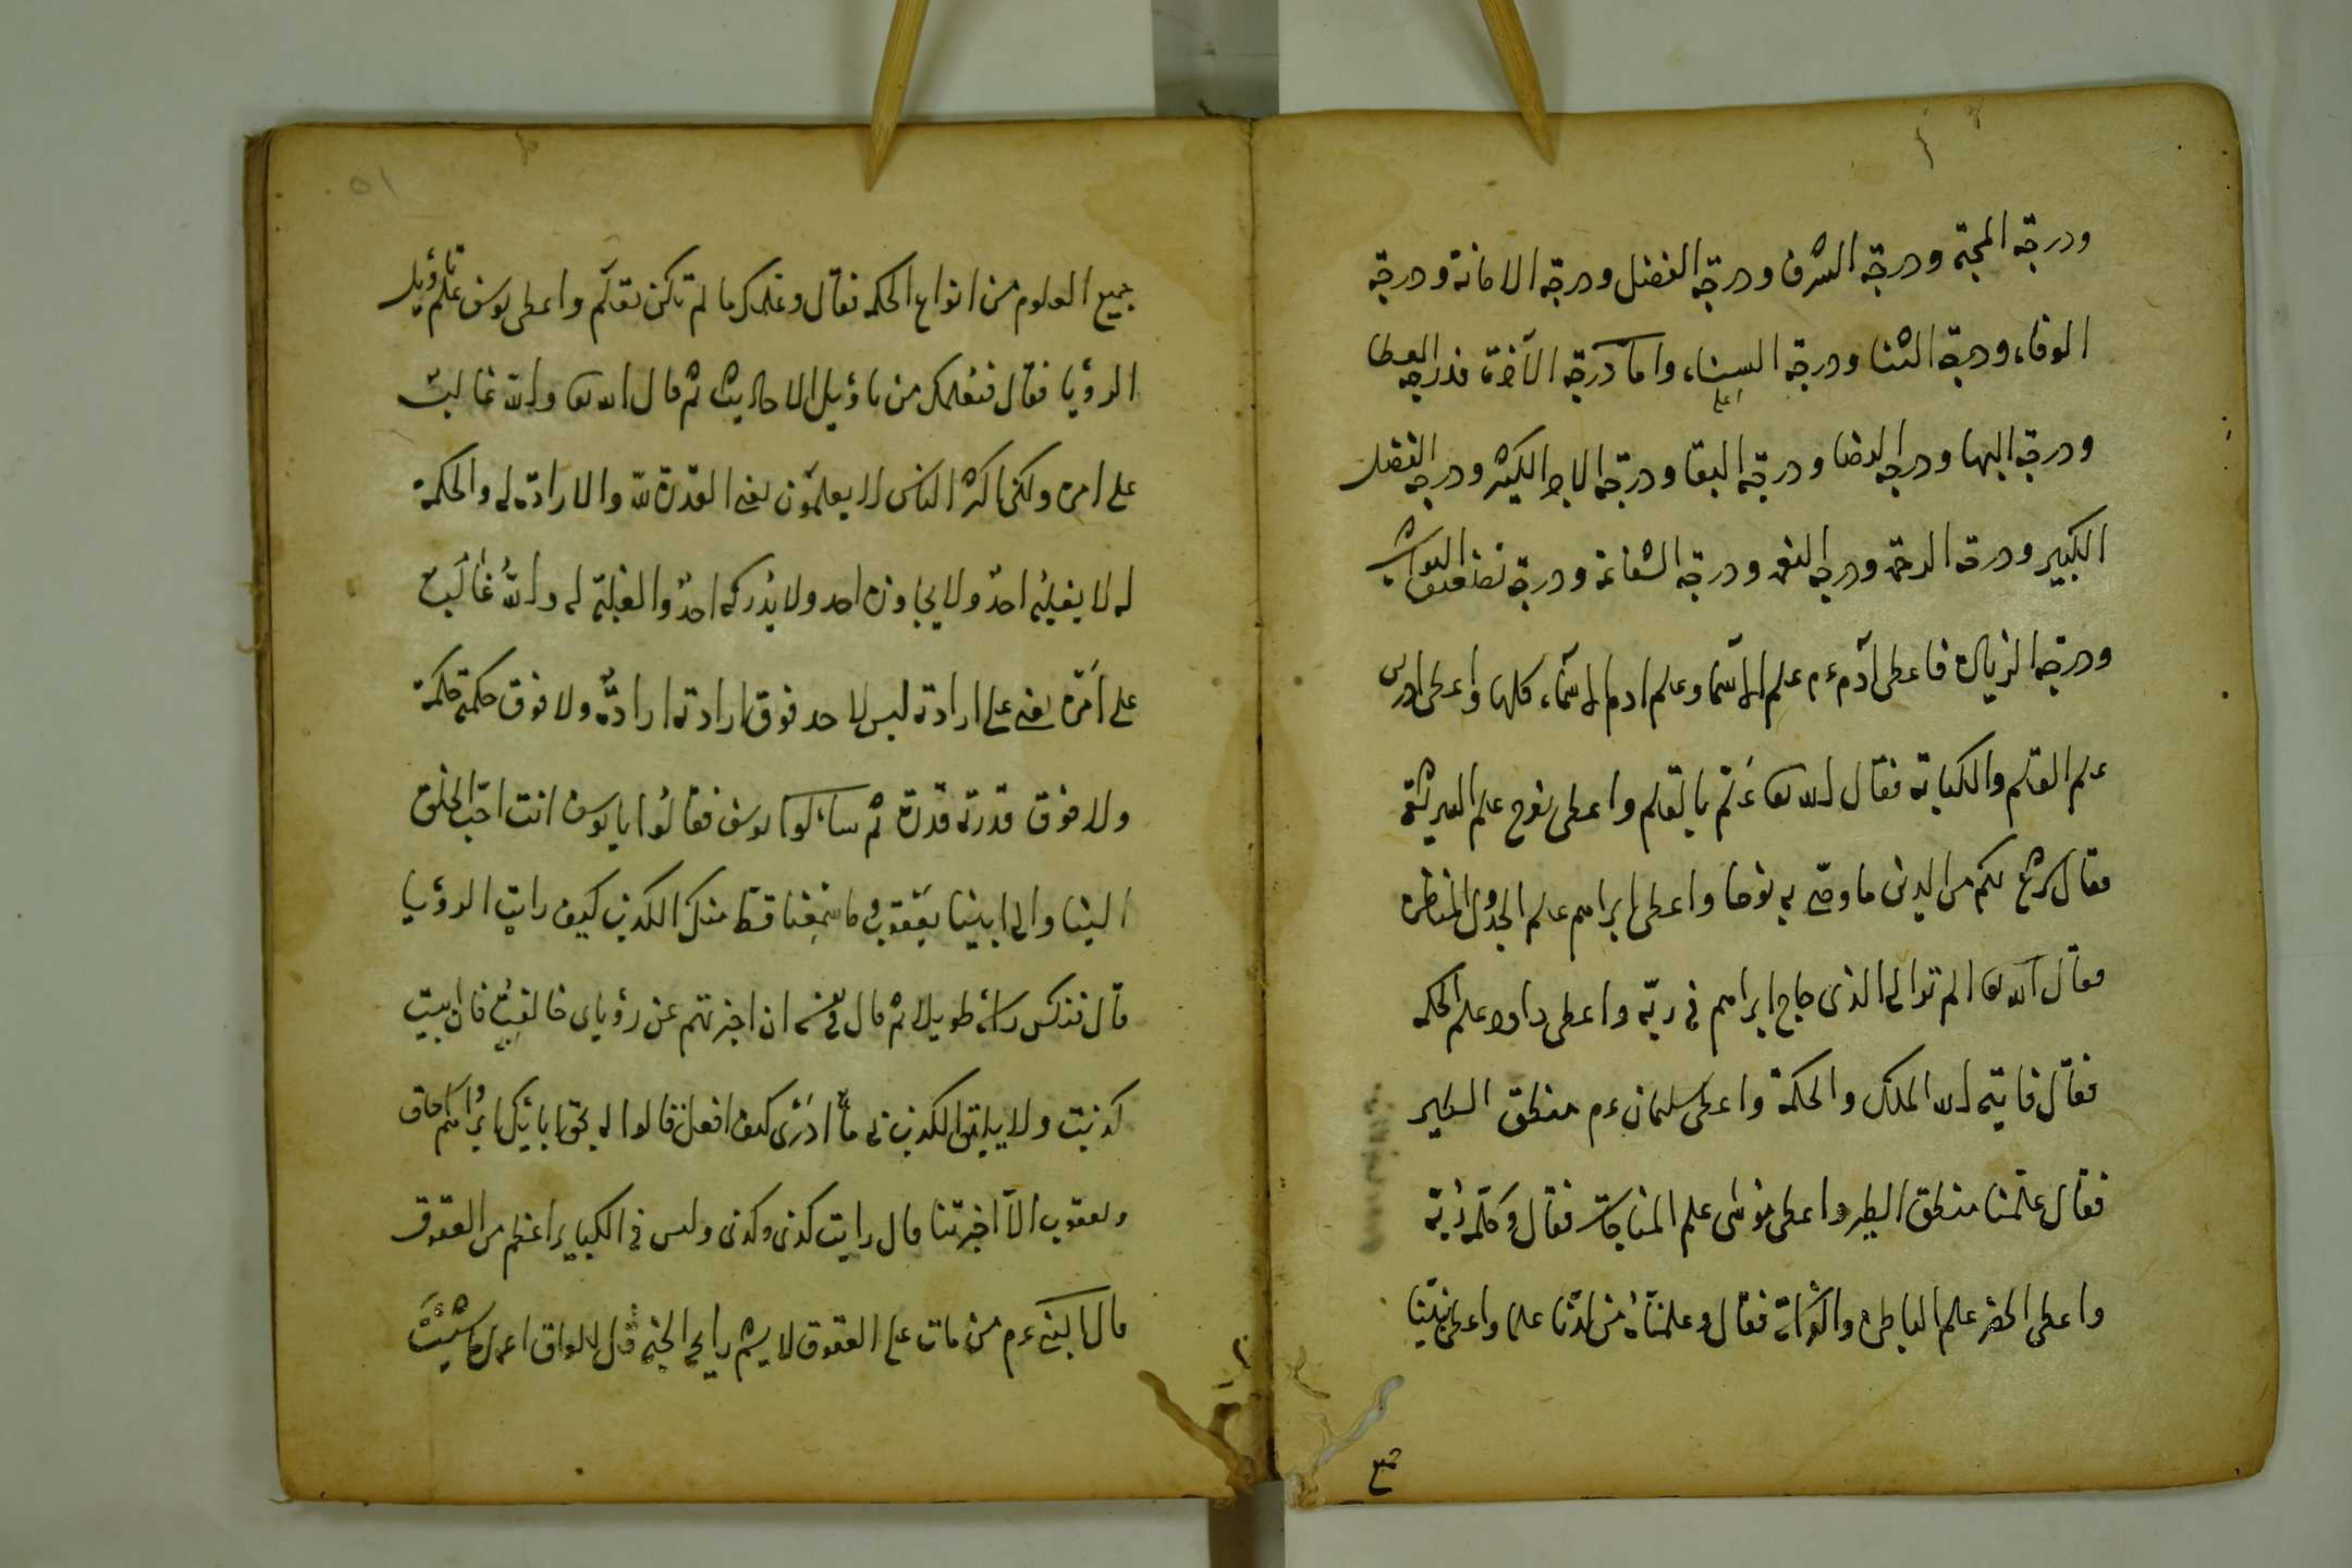 ودرجة المحبة ودرجة الشرف ودرجة الفضل ودرجة الامانة ودرجة
الوفاء ودرجة الثنا ودرجة السناء واما درجة الآخرة فدرجه العطا
ودرجة البها ودرجه الرضا ودرجة البقا ودرجة الاجر الكبير ودرجه الفضل
الكبير ودرجة الرحمة ودرجه النعمه ودرجة الشفاعة ودرجة تضعيف الثواب
ودرجة الزيادة فاعطى آدم ءم علم الاسما وعلم ادم الاسماء كلها واعطى ادريس
علم القلم والكتابة فقال الله تعا عَلّم بالقلم واعطى نوح علم الشريعة
فقال شرع لكم من الدين ما وصى به نوحا واعطى ابراهيم علم الجدل والمناظرة
فقال الله تعا الم تر الى الذى حاج ابراهيم فى ربه واعطى داود علم الحكمه
فقال فاتيه الله الملك والحكمة واعطى سليمان ءم منطق الطير
فقال علمنا منطق الطير واعطى موسٰى علم المناجات فقال وكلّمه ربّه
واعطى الخضر علم الباطن فقال وعلمناهُ من لدنا علما واعطى نبيّنا
جميع
جميع العلوم من انواع الحكمه فقال وعلمك ما لم تكن تعلم واعطى يوسف علم تأويل
الرؤيا فقال فنعلمك من تاويل الاحاديث ثم قال الله تعا والله غالب
على امره ولكن اكثر الناس لا يعلمون يعنى القدرة لله والارادة له والحكمة
له لا يغلبه احدٌ ولا يجاوزه احد ولا يدركه احدٌ والغلبة له واللهُ غالب
على امره يعنى على ارادته ليس لاحد فوق ارادته ارادةٌ ولا فوق حكمته حكمة
ولا فوق قدرته قدرة ثم سائلوا يوسف فقالوا يا يوسف انت احبّ الخلق
الينا والى ابينا يعقوب ما سمعنا قط منك الكذب كيف رايت الرؤيا
قال فنكس راسَهُ طويلا ثم قال فى نفسه ان اخبرتهم عن رؤياى خالفت فان ابيت
كذبت ولا يليق الكذب بى ما ادرى كيف افعل فقالوا له بحق ابائيك ابراهيم واسحاق
ويعقوب الّا اخبرتنا قال رايت كذى وكذى وليس فى الكباير اعظم من العقوق
قال النبى ءم من مات على العقوق لا يشم رايحة الجنه قل للعاق اعمل ما شئتَ